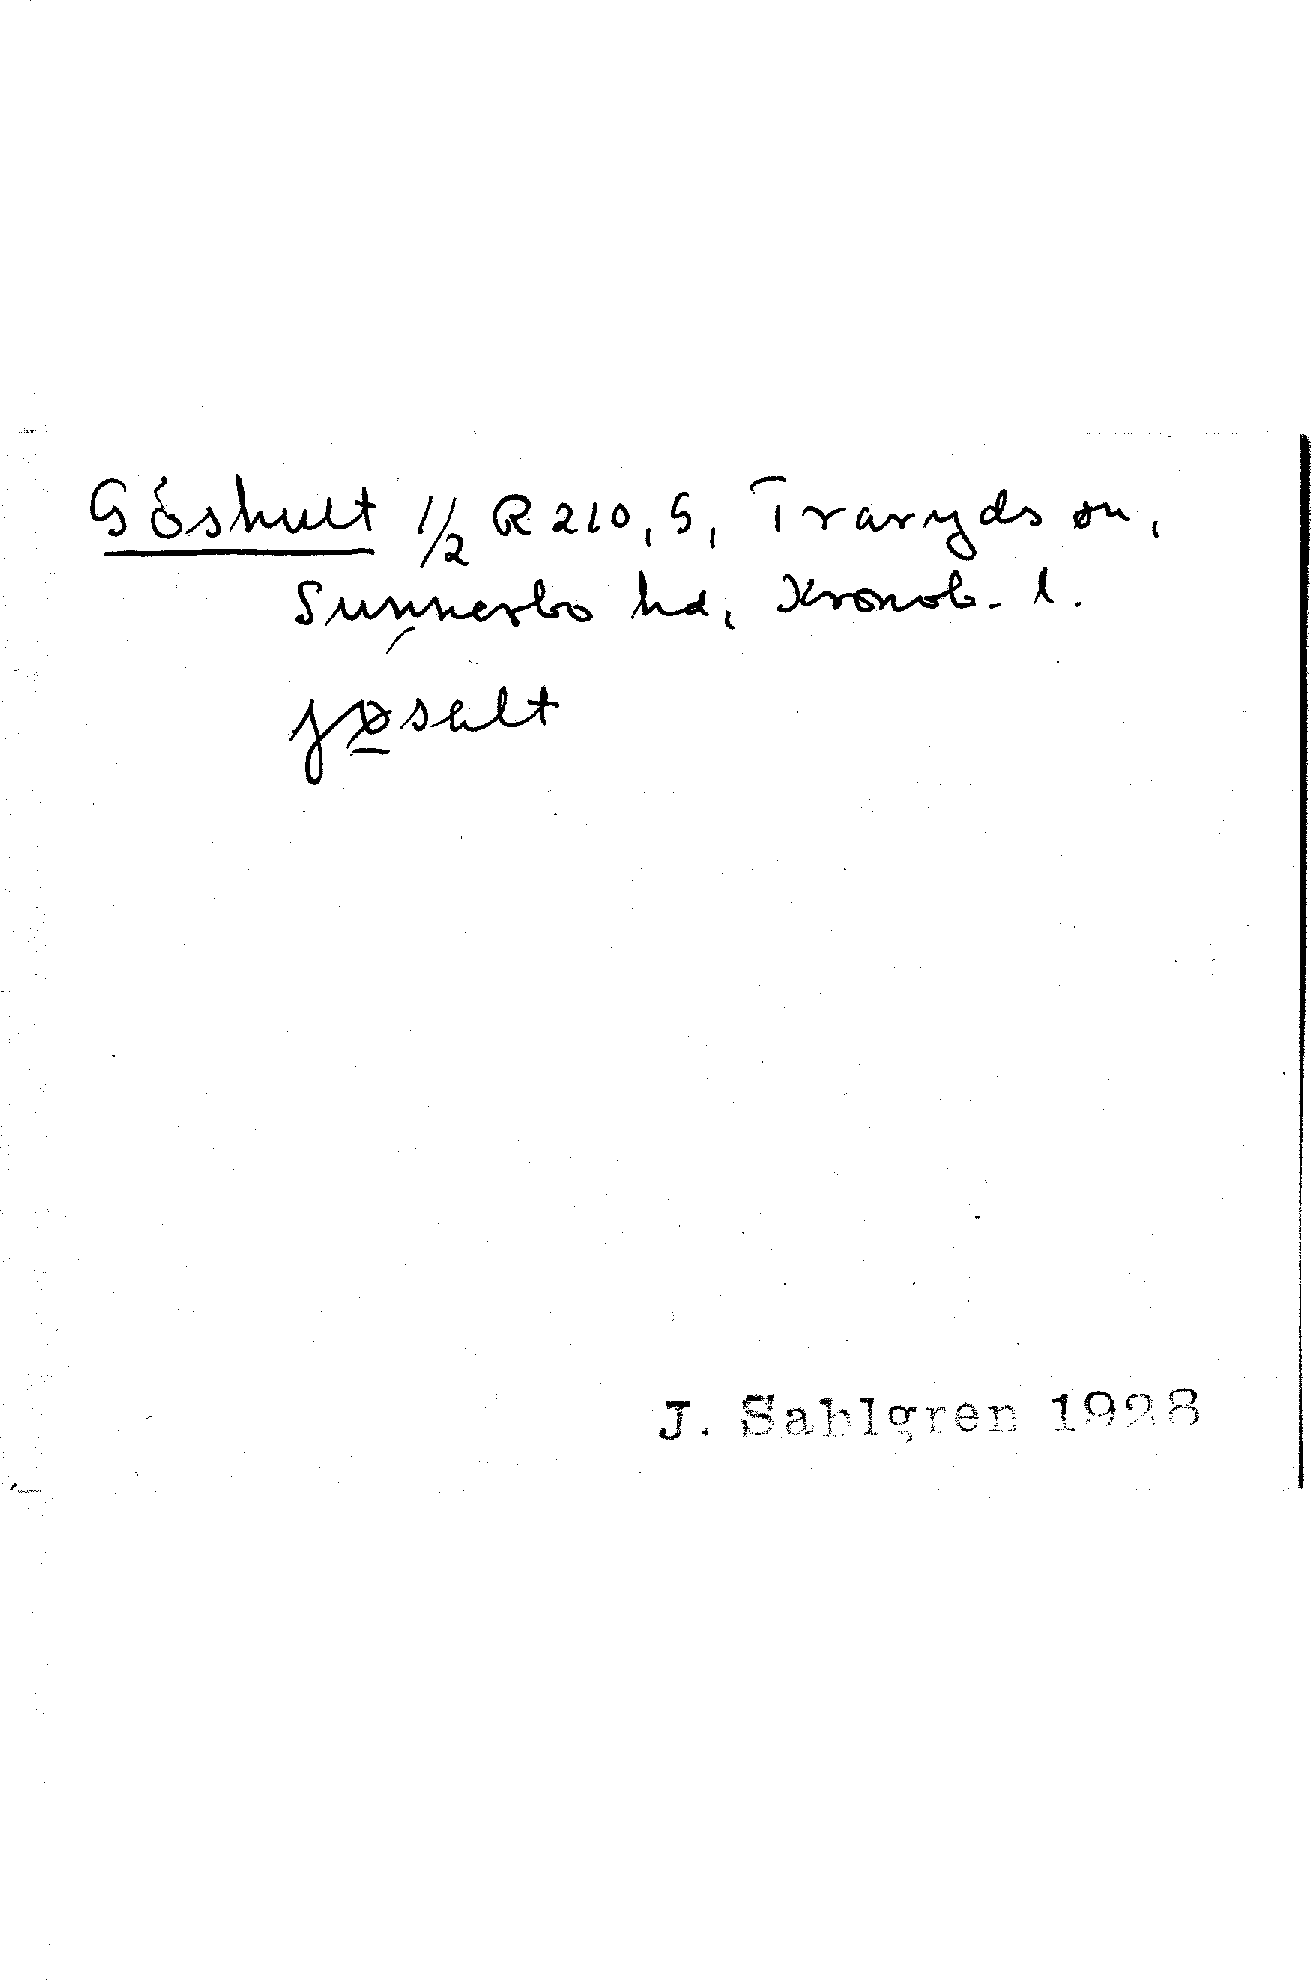 Göshult 1/2 R 210, G, Traryds sn,
Sunnerbo hd, Kronob. l.
jǿ̱sɘlt
J. Sahlgren 1928